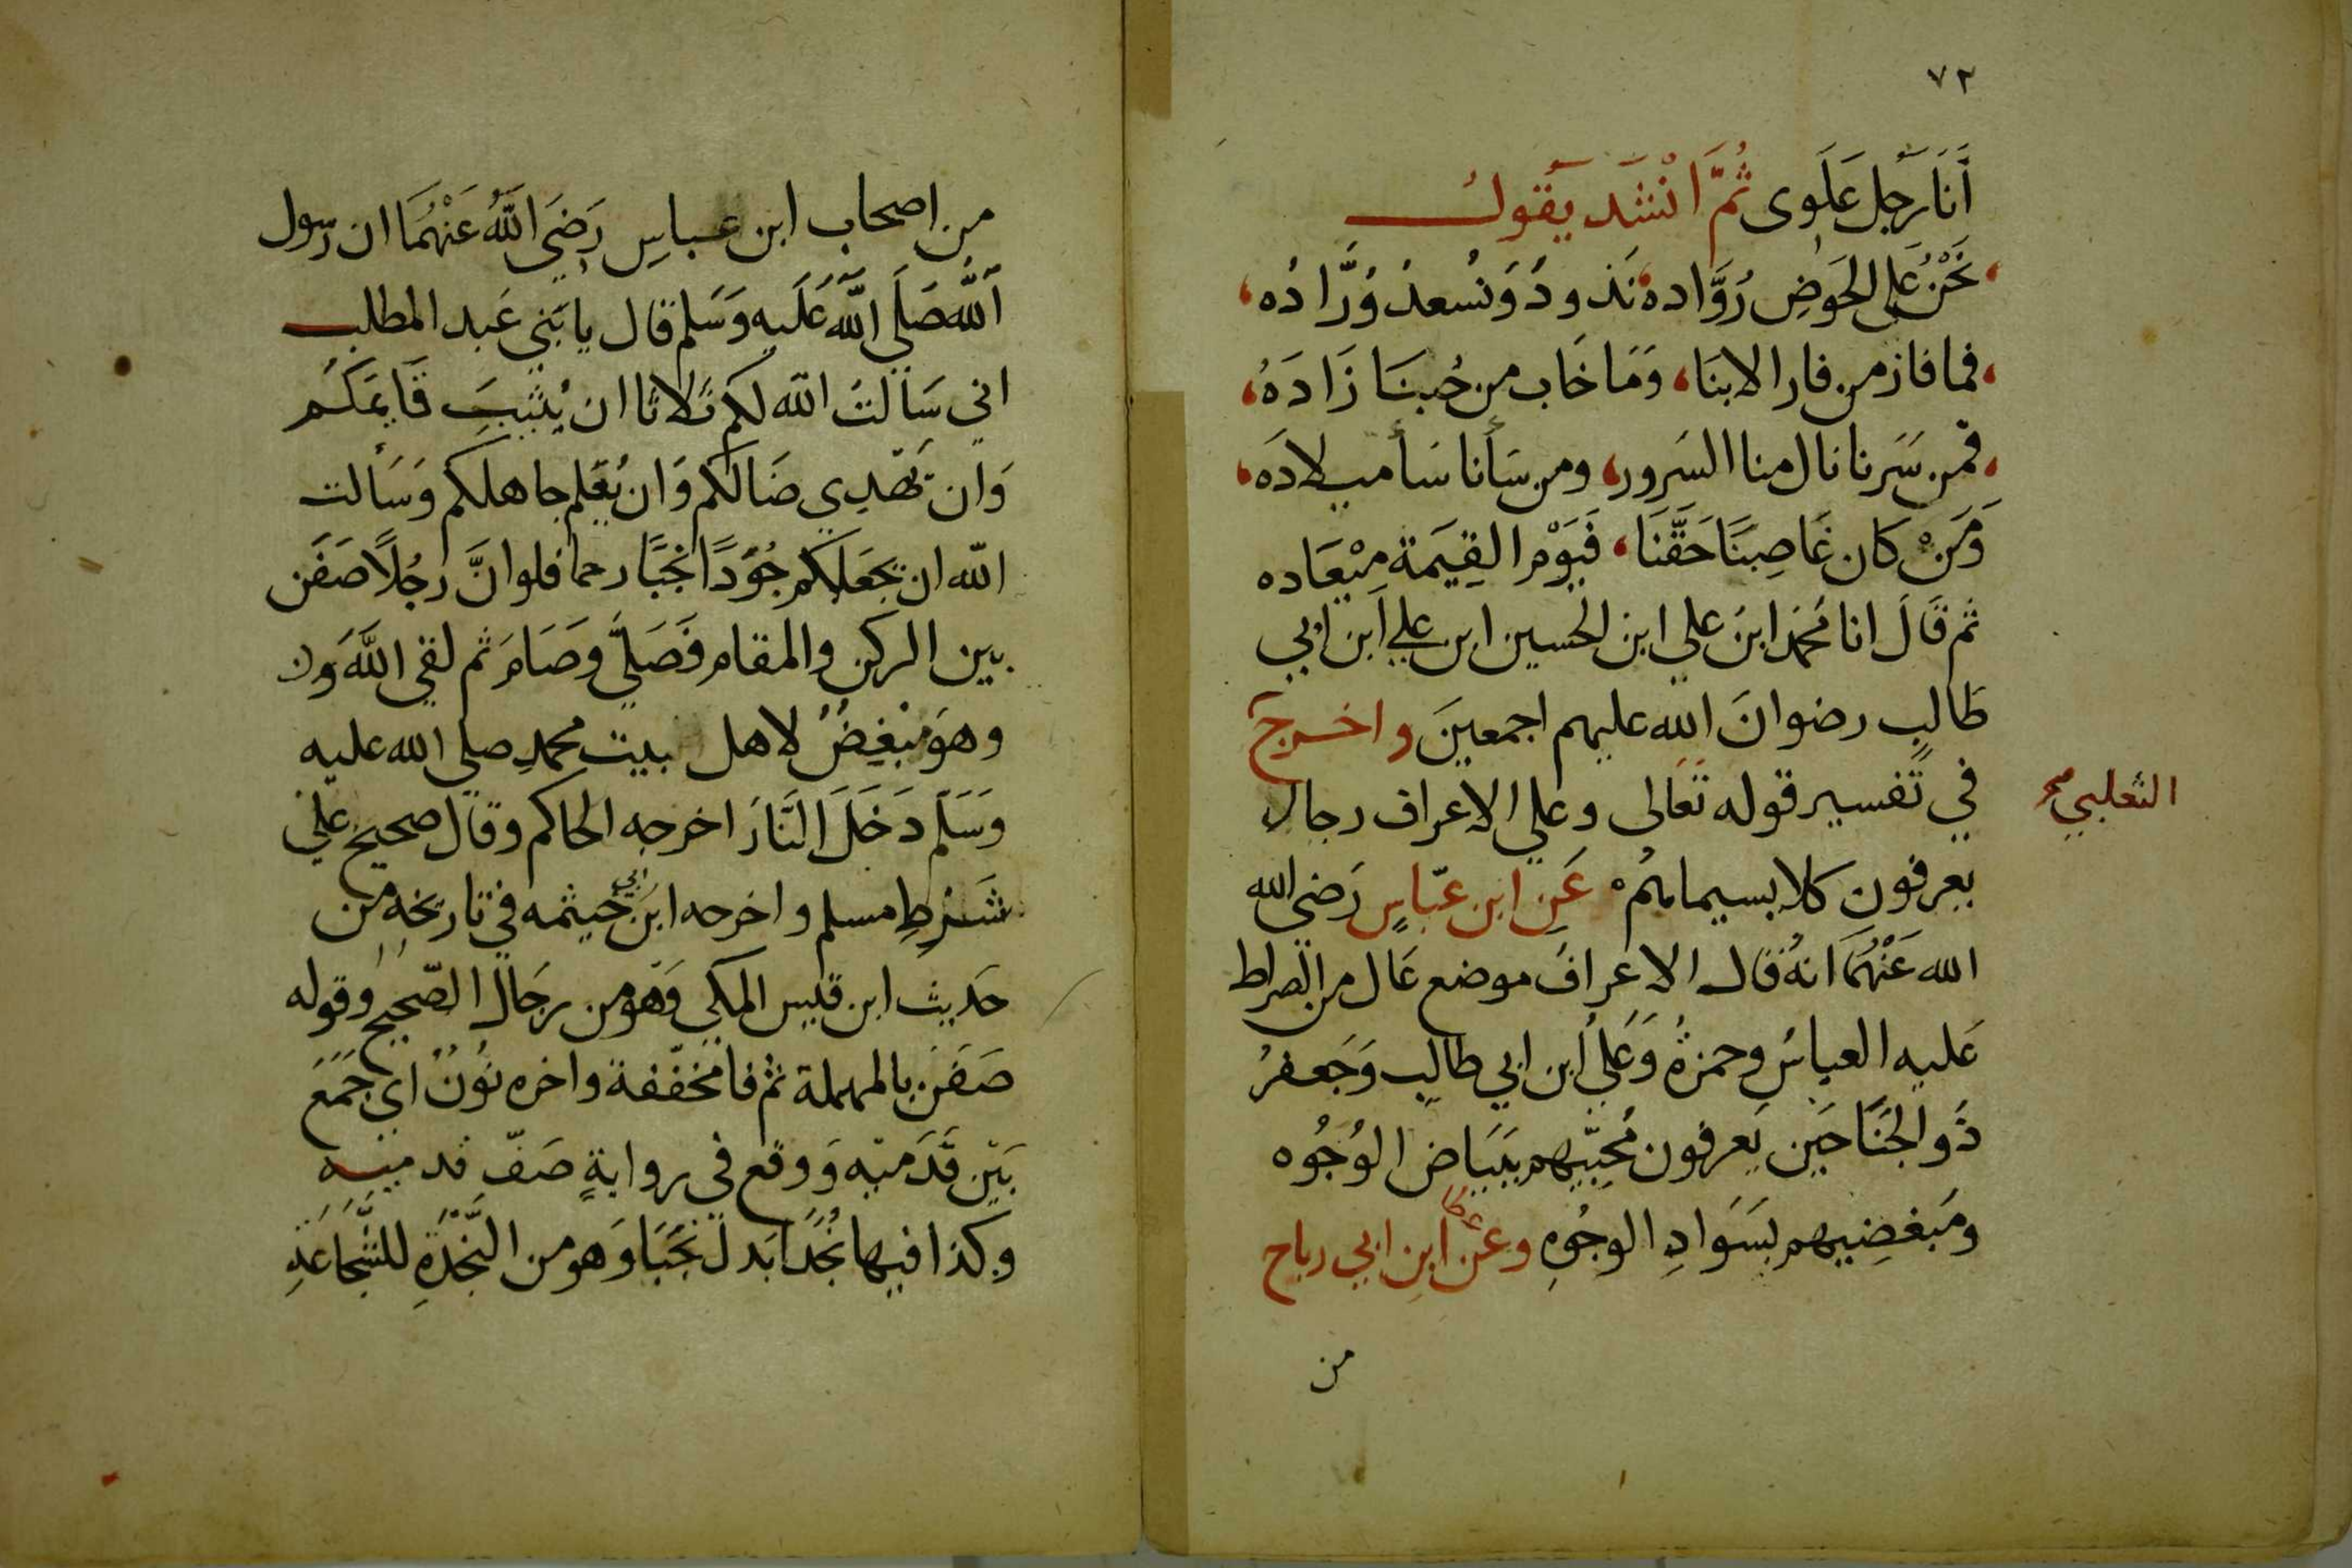 ٧٢
أَنَا رَجل عَلَوى ثُمَّ انْشَد يَقول
نَحْنُ عَلى الحَوضِ رُوَّاده نَذودُ وَنُسعدُ وُرَّادُه
فما فاز من فاز الا بنَا، وَمَا خَاب من حُبنَا زَادَهُ
فمن سَرنا نال منا السَرور، ومن سَأنا سَأ ميلادَه
وَمَنْ كَان غَاصِبنَا حَقَّنَا، فَيَوْم القِيَمَة مِيْعَاده
ثم قَالَ انا مُحَمد ابنُ علي ابن الحسين ابن علي ابن ابي
طَالبٍ رضوانَ الله عليهم اجمعينَ واخرج
الثعلبي صح
في تَفسير قوله تعَالى وعلي الاعراف رجال
يعرفون كلا بسيماهُم عَن ابن عبّاسٍ رَضي الله
الله عَنْهُمَا انهُ قال الاعرافُ موضع عَال من الصراط
عَليه العباسُ وحمزةُ وَعَليُ ابن ابي طالبٍ وَجَعفرُ
ذَو الجَنَاحَين يَعرفون مُحِبّيهم ببَيَاض الوُجُوه
ومَبغضِيهم بسَوَادِ الوجُوهِ وعَن عطا ابن ابي رباح
من
من اصحاب ابن عباسٍ رَضيَ اللهُ عَنْهُمَا ان رسول
اللَّه صَلَي اللَّه عَلَيه وَسَلم قال يا بَني عَبد المطلب
اني سَالتُ الله لكم ثَلاثا ان يُثَبِتَ قَايمَكُم
وَان يَهْدِي ضَالكُم وَان يُعَلم جاهلكم وَسَألت
الله ان يجَعَلكم جُوَدًا نجُبًا رحما فلو انَّ رجُلًا صَفَن
بين الركن والمقام فَصَليَّ وَصَامَ ثم لقي اللَّه
وهوَ مُبْغِضٌ لاهل بيت محمدٍ صلي الله عليه
وَسَلَم دَخَلَ النَّارَ اخرجه الحاكم وقال صحيح عليَ
شَرْطِ مسلم واخرجه ابن ابي خيثمه في تاريخه من
حَديث ابن قيس المكي وَهوَ من رجَال الصّحيح وقوله
صَفَن بالمهملة ثم فا مخفّفة واخره نُونٌ اي جَمَعَ
بَيَن قَدَميْه وَوقع في روايةٍ صَفّ قدميه
وكذا فيها نُجُدًا بَدل نُجَبَا وَهو من النَّجْدَةِ للشَّجَاعَةِ